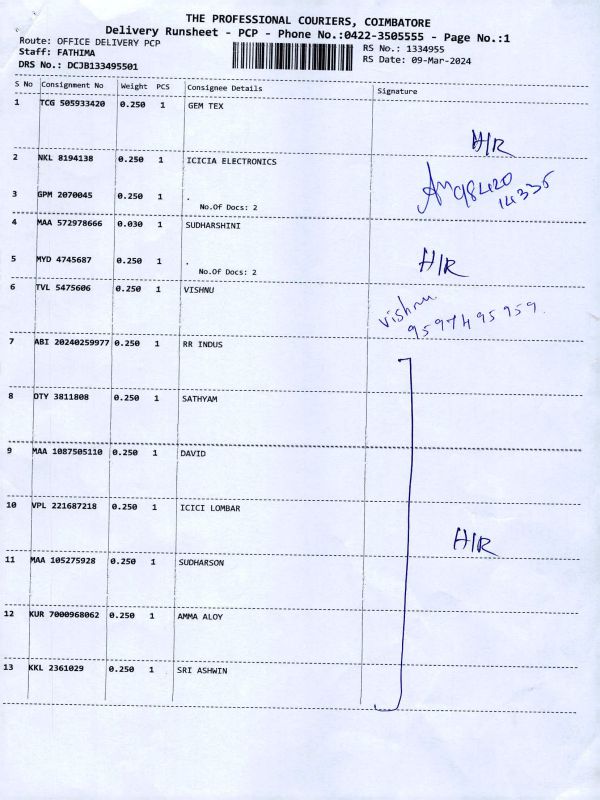 THE PROFESSIONAL COURIERS, COIMBATORE
Delivery Runsheet - PCP - Phone No.:0422-3505555 - Page No.:1
Route: OFFICE DELIVERY PCP
RS No.: 1334955
Staff: FATHIMA
RS Date: 09-Mar-2024
DRS No.: DCJB133495501
S No Consignment No Weight PCS Consignee Details Signature
1 TCG 505933420 0.250 1 GEM TEX
H/R
2 NKL 8194138 0.250 1 ICICIA ELECTRONICS
98420
14335
3 GPM 2070045 0.250 1 .
No.Of Docs: 2
4 MAA 572978666 0.030 1 SUDHARSHINI
H/R
5 MYD 4745687 0.250 1 .
No.Of Docs: 2
6 TVL 5475606 0.250 1 VISHNU
vishnu
9597495959
7 ABI 20240259977 0.250 1 RR INDUS
8 DTY 3811808 0.250 1 SATHYAM
9 MAA 1087505110 0.250 1 DAVID
10 VPL 221687218 0.250 1 ICICI LOMBAR
H/R
11 MAA 105275928 0.250 1 SUDHARSON
12 KUR 7000968062 0.250 1 AMMA ALOY
13 KKL 2361029 0.250 1 SRI ASHWIN